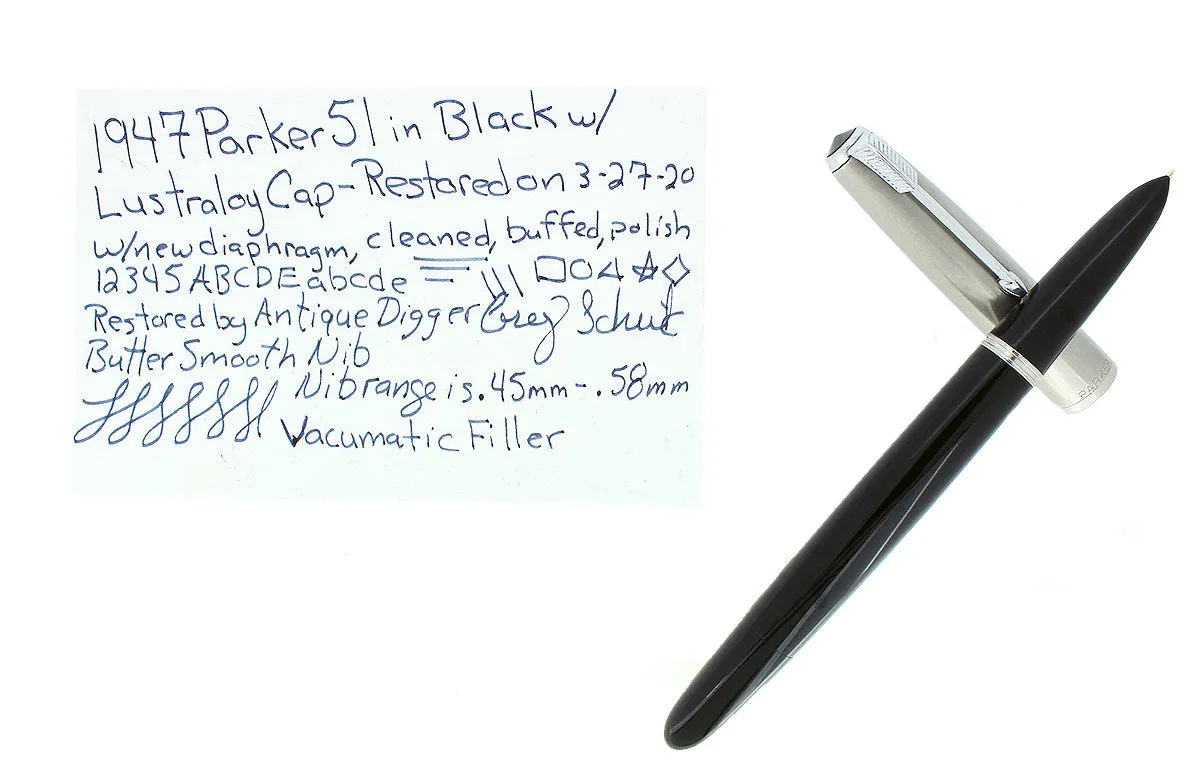 1947 Parker 51 in Black w/
Lustraloy Cap - Restored on 3-27-20
w/new diaphragm, cleaned, buffed, polish
12345 ABCDE abcde
Restored by Antique Digger Greg Schut
Butter Smooth Nib
Nib range is .45mm - .58mm
Vacumatic Filler
PARKER